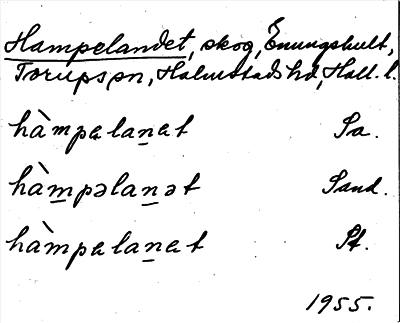 Hampelandet, skog, Enungshult,
Torups sn, Halmstads hd, Hall. l.
hàmpelan̲et Sa.
hàm̲pəlan̲ət Sand.
hàmpelan̲et St.
1955.